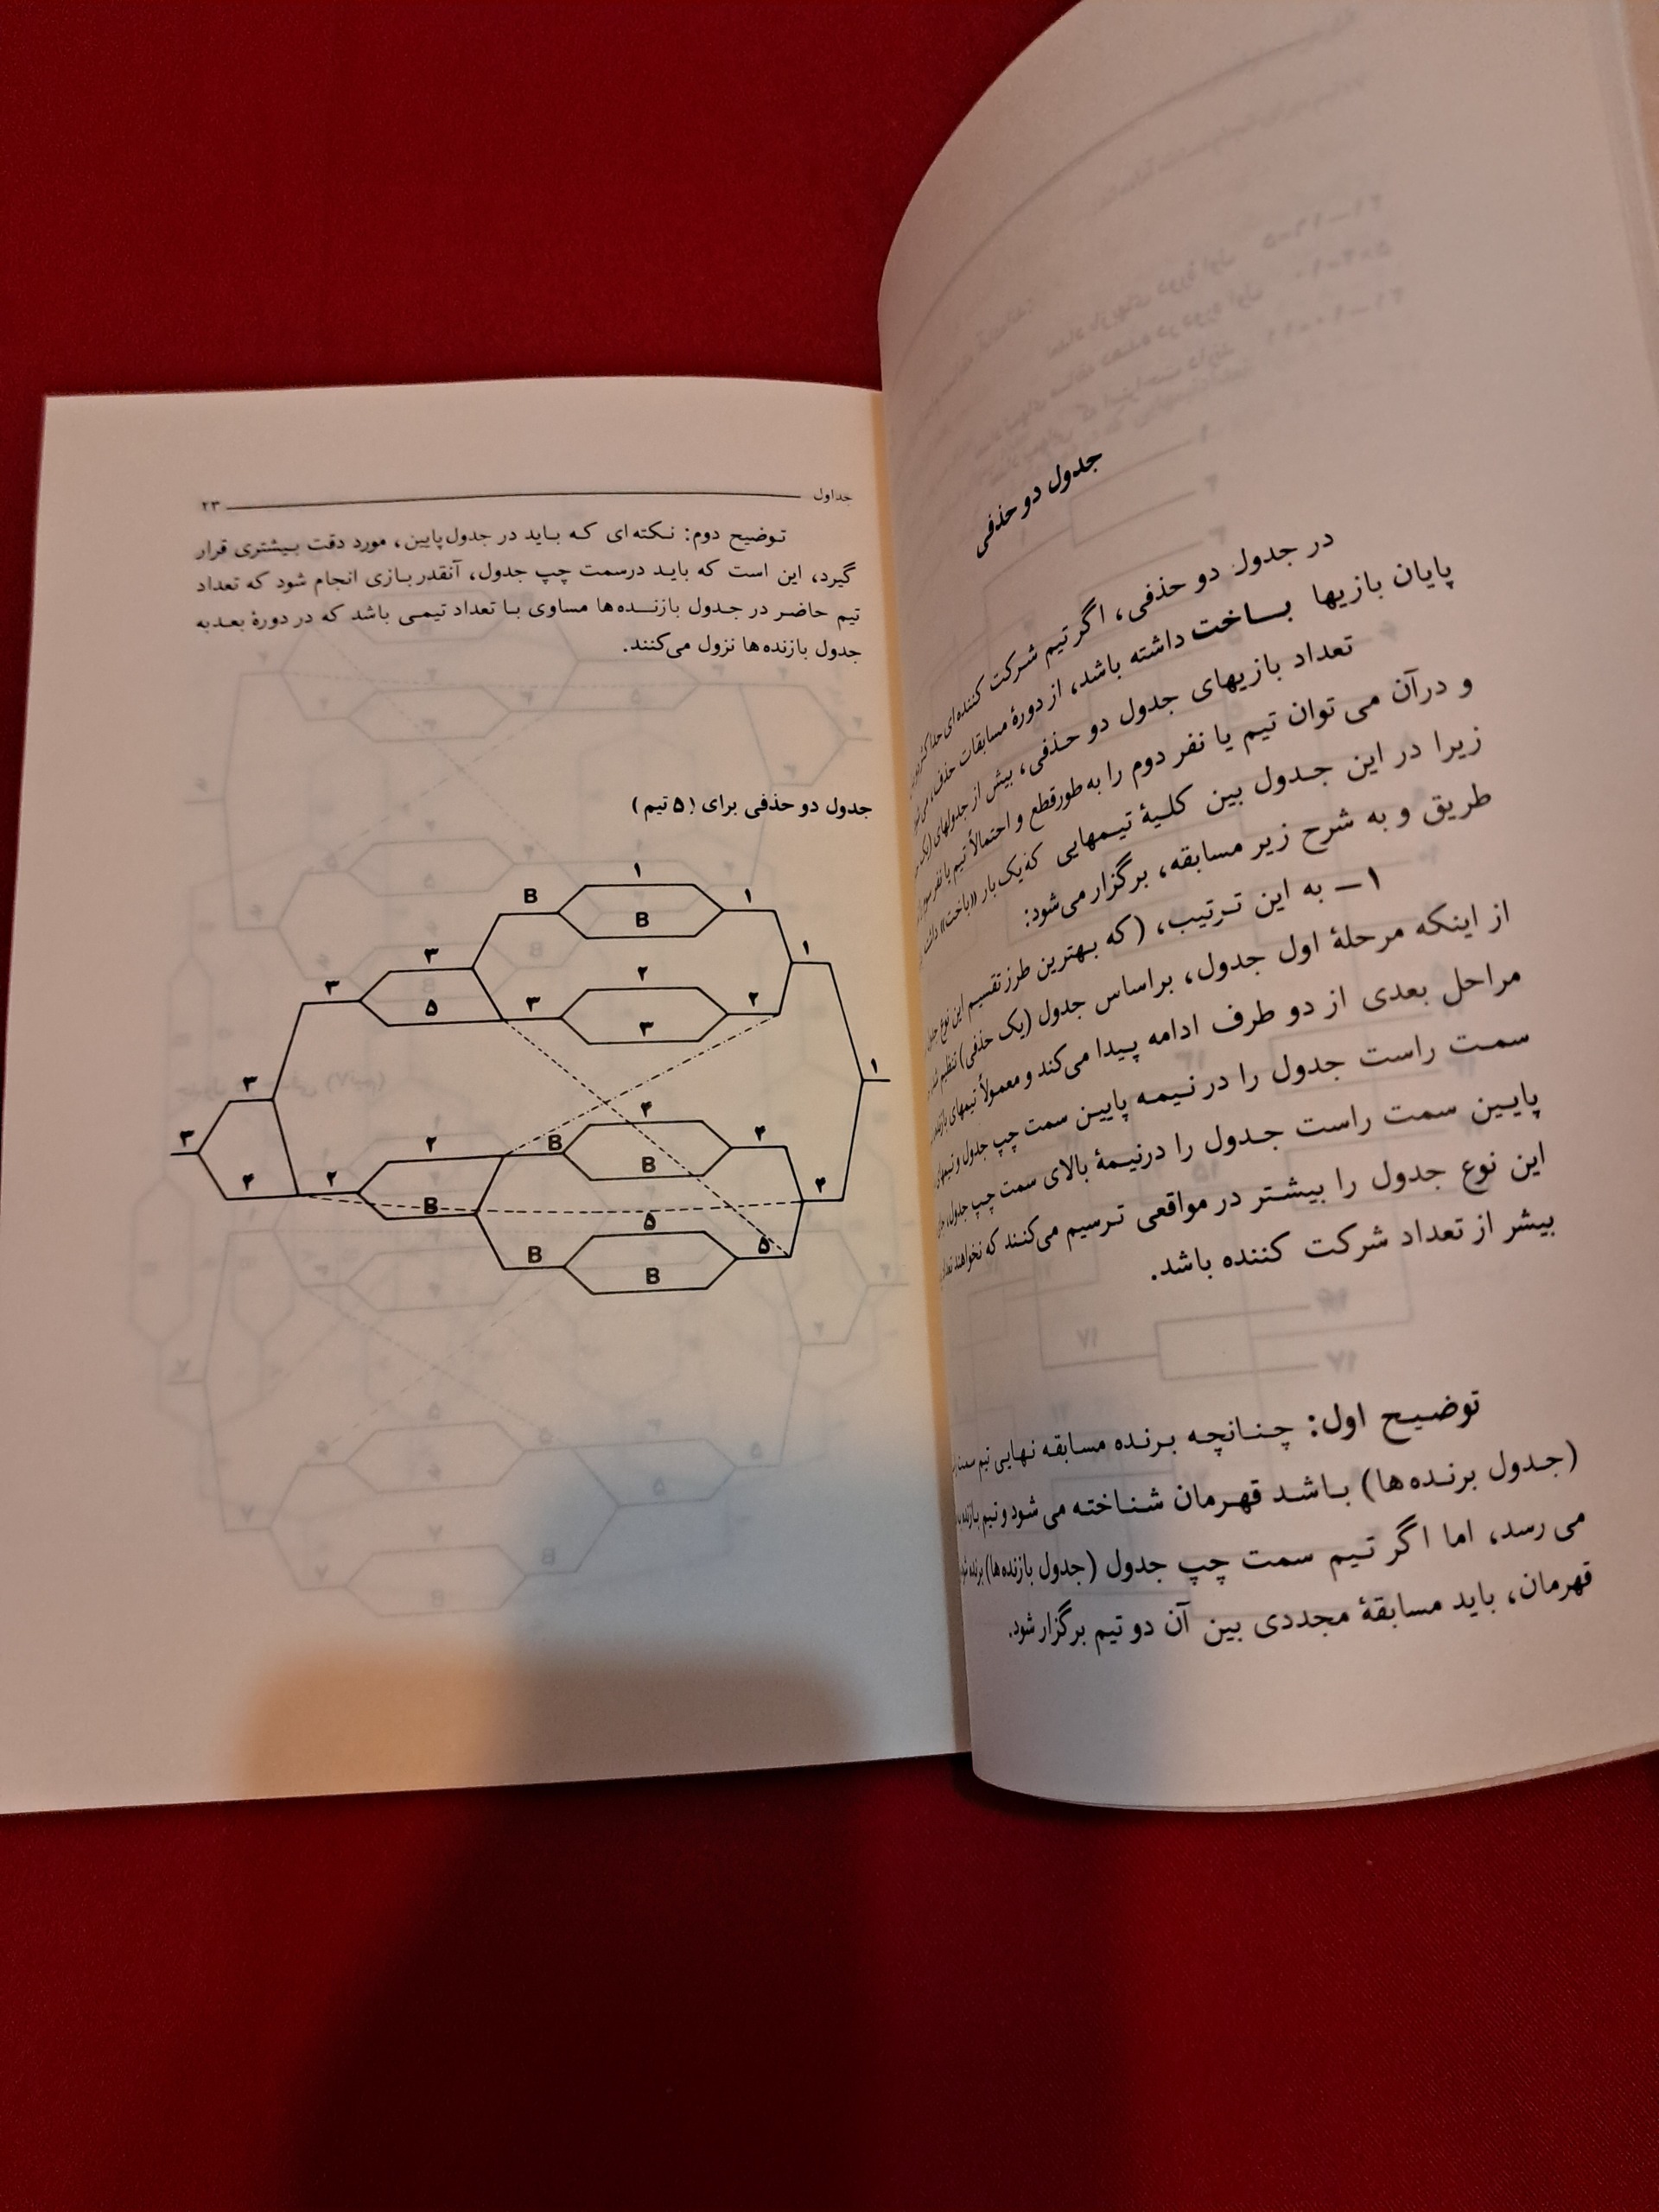 جدول دو حذفی
در جدول دو حذفی، اگر تیم شرکت کننده‌ای
پایان بازیها بـاخت داشته باشد، از دورهٔ مسابقات حذف
تعداد بازیهای جدول دو حذفی، بیش از جدولهای
و در آن می توان تیم یا نفر دوم را به طور قطع و احتمالاً تیم یا نفر سوم را
زیرا در این جدول بین کلیهٔ تیمهایی که یک بار «باخت»
طریق و به شرح زیر مسابقه، برگزار می‌شود:
۱— به این ترتیب، (که بهترین طرز تقسیم این نوع
از اینکه مرحلهٔ اول جدول، براساس جدول (یک حذفی) تنظیم
مراحل بعدی از دو طرف ادامه پیدا می‌کند و معمولاً تیمهای
سمت راست جدول را در نیمه پایین سمت چپ جدول و تیمهای
پایین سمت راست جدول را درنیمهٔ بالای سمت چپ جدول،
این نوع جدول را بیشتر در مواقعی ترسیم می‌کنند که نخواهند
بیشر از تعداد شرکت کننده باشد.
توضیح اول: چنانچه برنده مسابقه نهایی تیم سمت
(جدول برنده ها) باشد قهرمان شناخته می شود و تیم
می رسد، اما اگر تیم سمت چپ جدول (جدول بازنده ها) برنده
قهرمان، باید مسابقهٔ مجددی بین آن دو تیم برگزار شود.
جداول ۲۳
توضیح دوم: نکته ای که باید در جدول پایین، مورد دقت بیشتری قرار
گیرد، این است که باید درسمت چپ جدول، آنقدر بازی انجام شود که تعداد
تیم حاضر در جدول بازنده ها مساوی با تعداد تیمی باشد که در دورهٔ بعد به
جدول بازنده ها نزول می‌کنند.
جدول دو حذفی برای (۵ تیم)
B ۱ ۱
B
۱
۳
۳ ۲
۵ ۳ ۲
۳
۱
۳
۴
۳ B ۴
۲ B
۴ ۲ ۴
B ۵
۵
B B